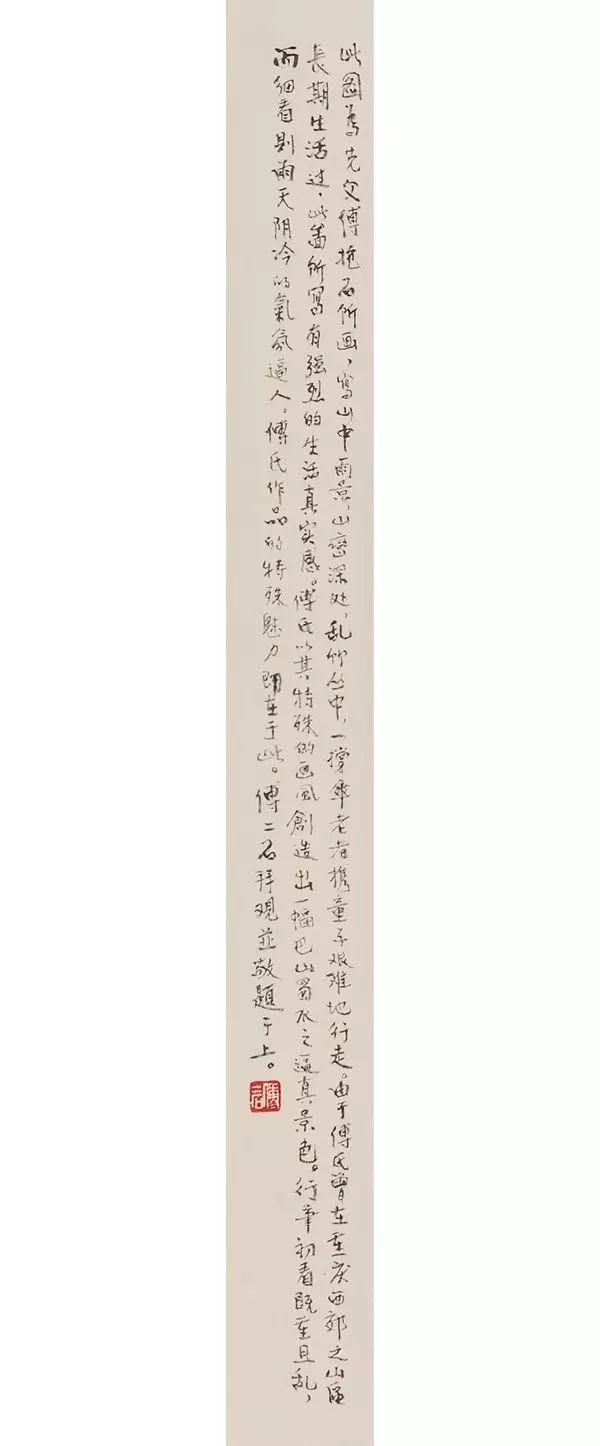 此图为先父傅抱石所画，写山中雨景，山峦深处，乱竹丛中，一撑伞老者携童子艰难地行走。由于傅氏曾在重庆西郊之山区
長期生活过，此画所寫有强烈的生活真实感。傅氏以其特殊的画风創造出一幅巴山蜀水之逼真景色。行笔初看既重且乱，
而细看则雨天阴冷的氣氛逼人。傅氏作品的特殊魅力即在于此。傅二石拜观並敬題于上。